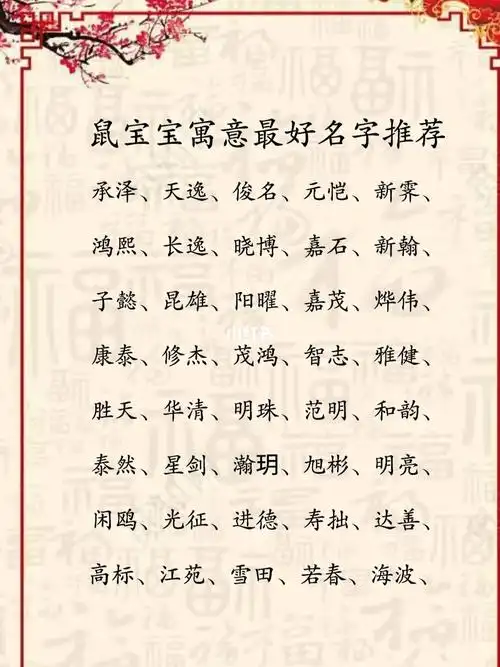 鼠宝宝寓意最好名字推荐
承泽、天逸、俊名、元恺、新霁、
鸿熙、长逸、晓博、嘉石、新翰、
子懿、昆雄、阳曜、嘉茂、烨伟、
康泰、修杰、茂鸿、智志、雅健、
胜天、华清、明珠、范明、和韵、
泰然、星剑、瀚玥、旭彬、明亮、
闲鸥、光征、进德、寿拙、达善、
高标、江苑、雪田、若春、海波、